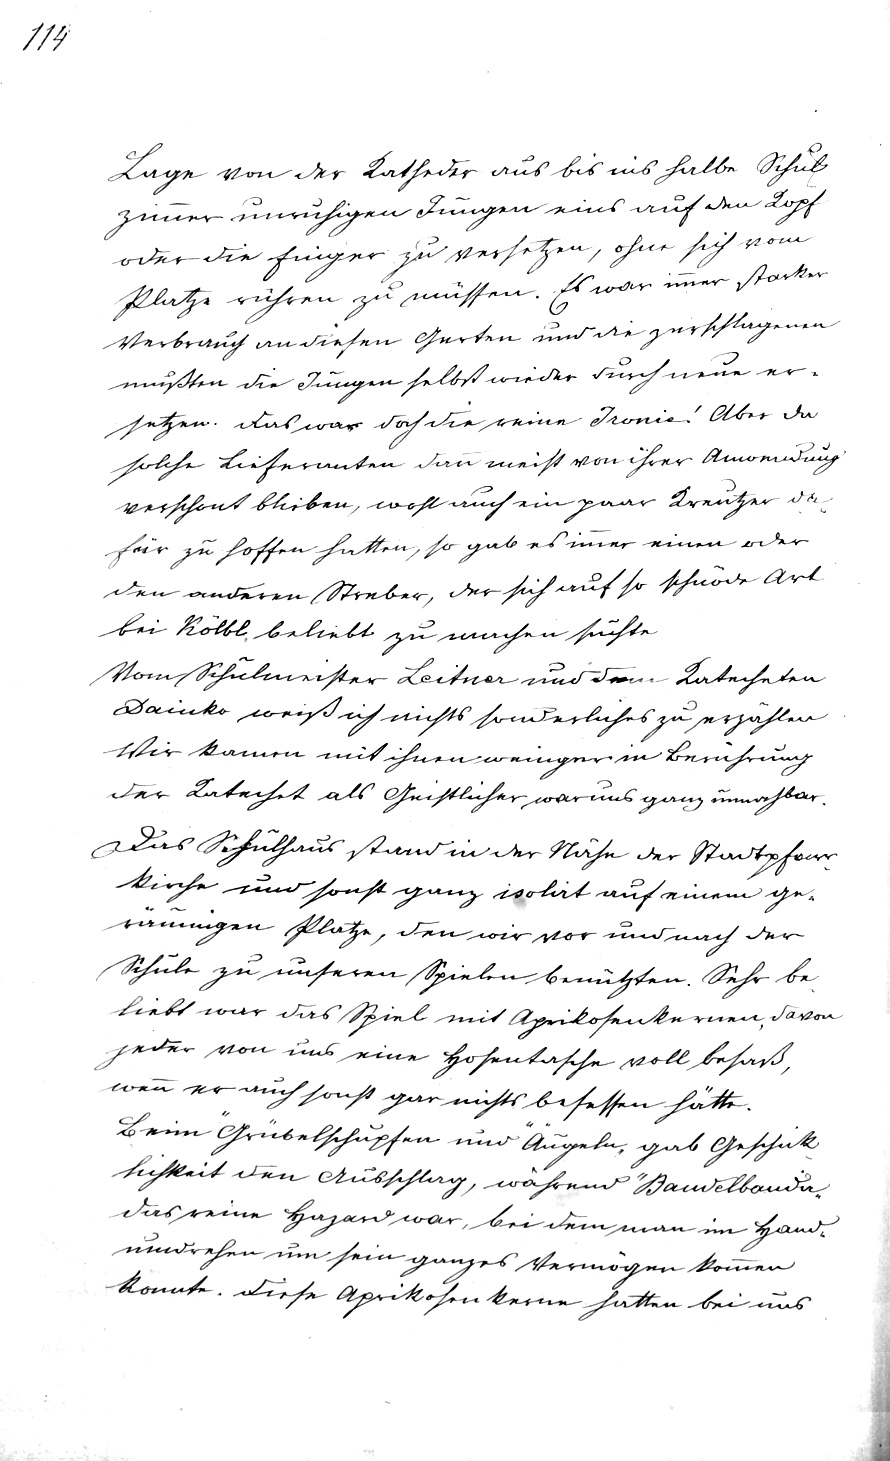 114
Lage von der Katheder aus bis ins halbe Schul
zimmer unruhigen Jungen eins auf den Kopf
oder die Finger zu versetzen, ohne sich vom
Platze rühren zu müssen. Es war immer starker
Verbrauch an diesen Gerten und die zerschlagenen
mußten die Jungen selbst wieder durch neue er-
setzen. Das war doch die reine Ironie! Aber da
solche Lieferanten dann meist von ihrer Anwendung
verschont blieben, wohl auch ein paar Kreutzer da-
für zu hoffen hatten, so gab es immer einen oder
den anderen Streber, der sich auf so schnöde Art
bei Kölbl beliebt zu machen suchte
Vom Schulmeister Leitner und dem Katecheten
Dainko weiß ich nichts sonderliches zu erzählen
Wir kamen mit ihnen weinger in Berührung
der Katechet als Geistlicher war uns ganz unnahbar.
Das Schulhaus stand in der Nähe der Stadtpfarr-
kirche und sonst ganz isolirt auf einem ge-
räumigen Platze, den wir vor und nach der
Schule zu unseren Spielen benützten. Sehr be-
liebt war das Spiel mit Aprikosenkernen, davon
jeder von uns eine Hosentasche voll besaß,
wenn er auch sonst gar nichts besessen hätte.
Beim "Grübelschupfen und "Äugeln" gab Geschick
lichkeit den Ausschlag, während "Bandelbanda"
das reine Hazard war, bei dem man im Hand-
umdrehen um sein ganzes Vermögen kommen
konnte. Diese Aprikosenkerne hatten bei uns